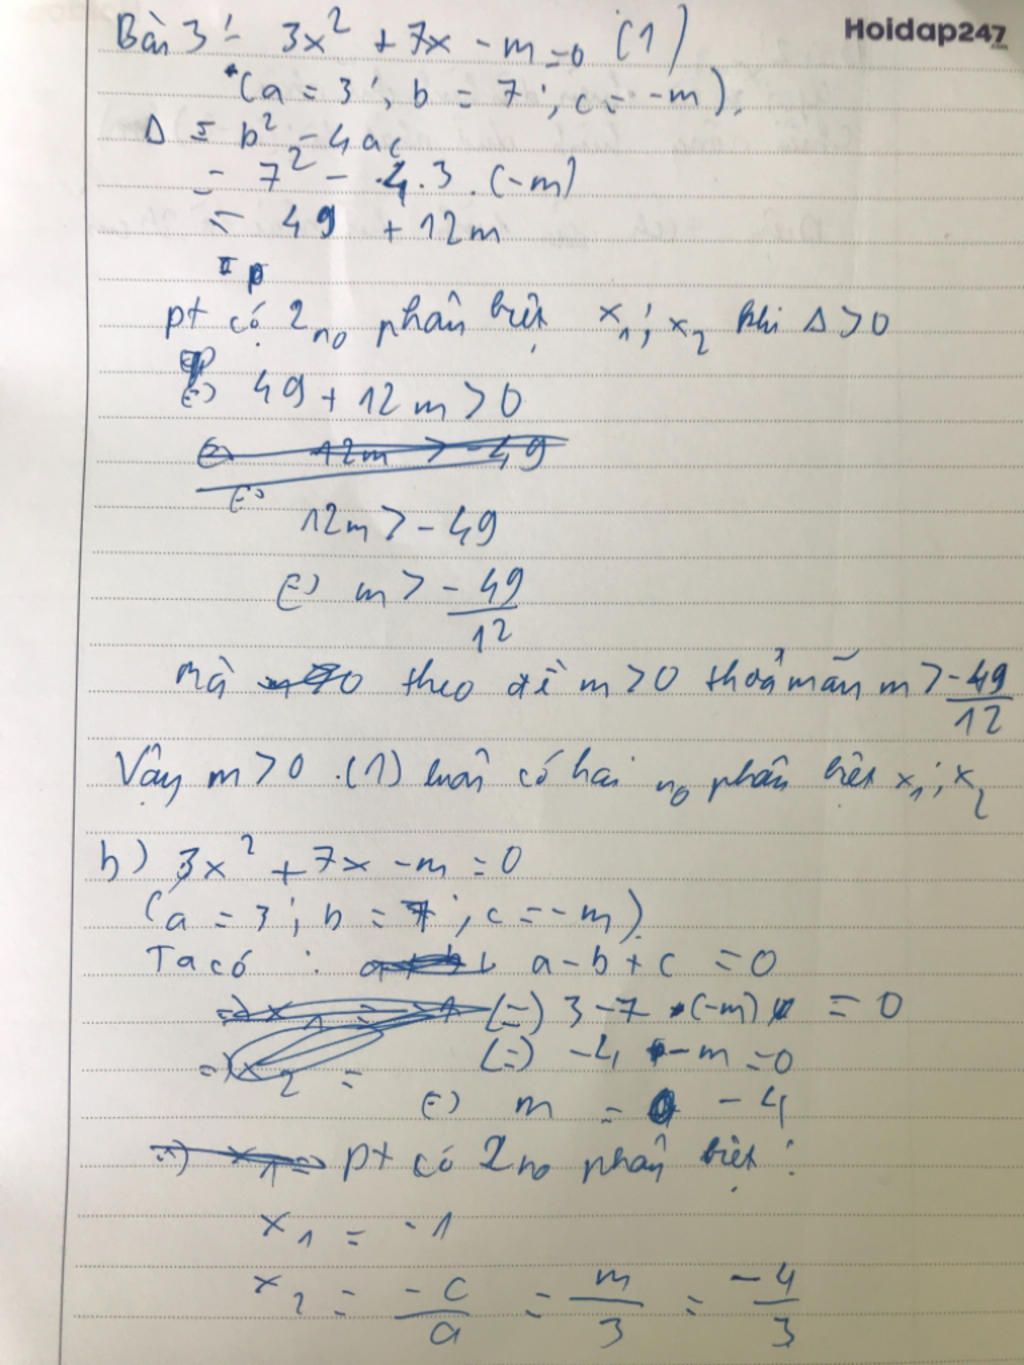 Hoidap247
Bài 3: 3x² + 7x - m = 0 (1)
(a = 3; b = 7; c = -m).
Δ = b² - 4ac
= 7² - 4.3.(-m)
= 49 + 12m
pt có 2 no phân biệt x₁; x₂ khi Δ > 0
(=) 49 + 12m > 0
(=) 12m > -49
(=)
12m > -49
(=) m > -49/12
Mà theo đề m > 0 thoả mãn m > -49/12
Vậy m > 0 .(1) luôn có hai no phân biệt x₁; x₂
b) 3x² + 7x - m = 0
(a = 3; b = 7; c = -m).
Ta có : a - b + c = 0
(=) 3 - 7 (-m) = 0
=) x₂ = (=) -4 - m = 0
(=) m = -4
pt có 2 no phân biệt :
x₁ = -1
x₂ = -c/a = m/3 = -4/3